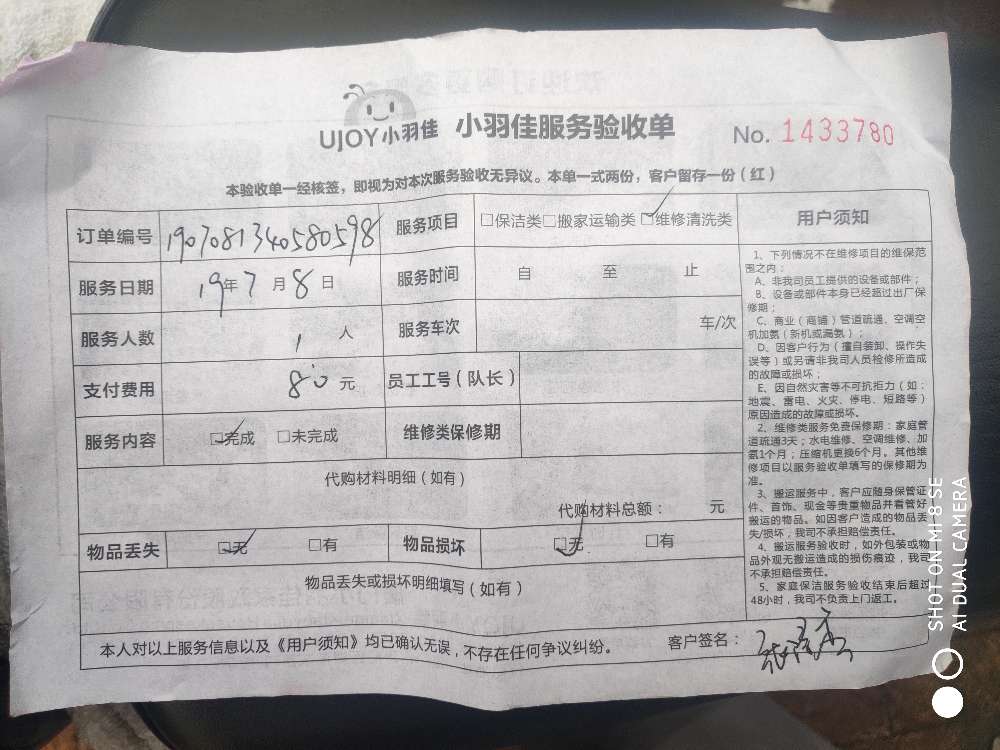 UJOY小羽佳 小羽佳服务验收单 No. 1433780
本验收单一经核签，即视为对本次服务验收无异议。本单一式两份，客户留存一份（红）
订单编号 1907081340580598 服务项目 □保洁类□搬家运输类☑维修清洗类
服务日期 19年7月8日 服务时间 自 至 止
服务人数 1人 服务车次 车/次
支付费用 80元 员工工号（队长）
服务内容 ☑完成 □未完成 维修类保修期
代购材料明细（如有）
代购材料总额： 元
物品丢失 ☑无 □有 物品损坏 ☑无 □有
物品丢失或损坏明细填写（如有）
本人对以上服务信息以及《用户须知》均已确认无误，不存在任何争议纠纷。 客户签名：
用户须知
1、下列情况不在维修项目的维保范
围之内：
A、非我司员工提供的设备或部件；
B、设备或部件本身已经超过出厂保
修期；
C、商业（商铺）管道疏通、空调空
机加氨（新机或漏氨）；
D、因客户行为（擅自装卸、操作失
误等）或另请非我司人员检修所造成
的故障或损坏；
E、因自然灾害等不可抗拒力（如：
地震、雷电、火灾、停电、短路等）
原因造成的故障或损坏。
2、维修类服务免费保修期：家庭管
道疏通3天；水电维修、空调维修、加
氨1个月；压缩机更换6个月。其他维
修项目以服务验收单填写的保修期为
准。
3、搬运服务中，客户应随身保管证
件、首饰、现金等贵重物品并看管好
搬运的物品。如因客户造成的物品丢
失/损坏，我司不承担赔偿责任。
4、搬运服务验收时，如外包装或物
品外观无搬运造成的损伤痕迹，我司
不承担赔偿责任。
5、家庭保洁服务验收结束后超过
48小时，我司不负责上门返工。
SHOT ON MI 8 SE
AI DUAL CAMERA